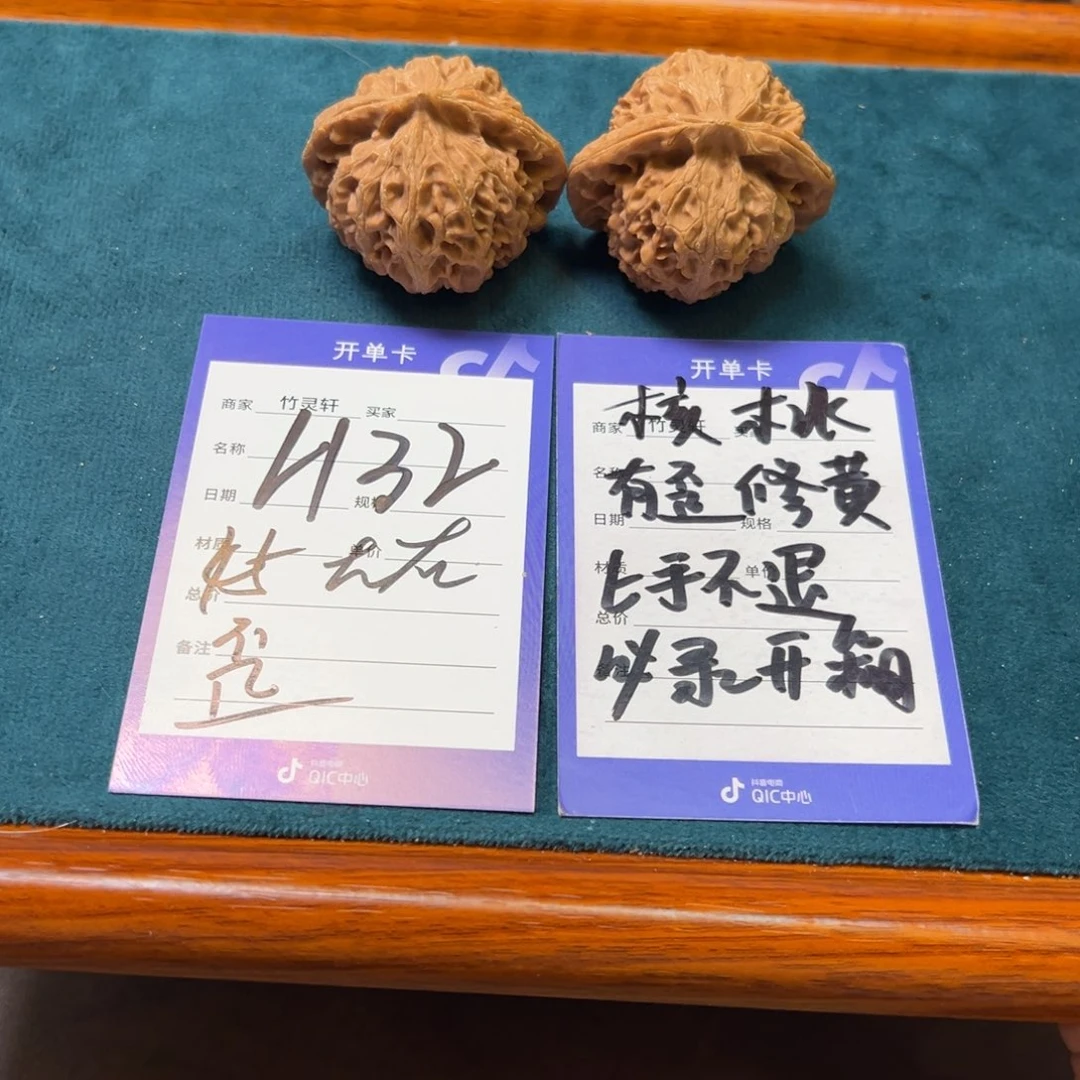 开单卡
商家 竹灵轩 买家
名称
日期 规格
材质 单价
总价
备注
歪
抖音电商
QIC中心
开单卡
核桃
商家 竹灵轩 买家
有歪 修黄
名称
日期 规格
上手不退
材质 单价
总价
必录开箱
抖音电商
QIC中心